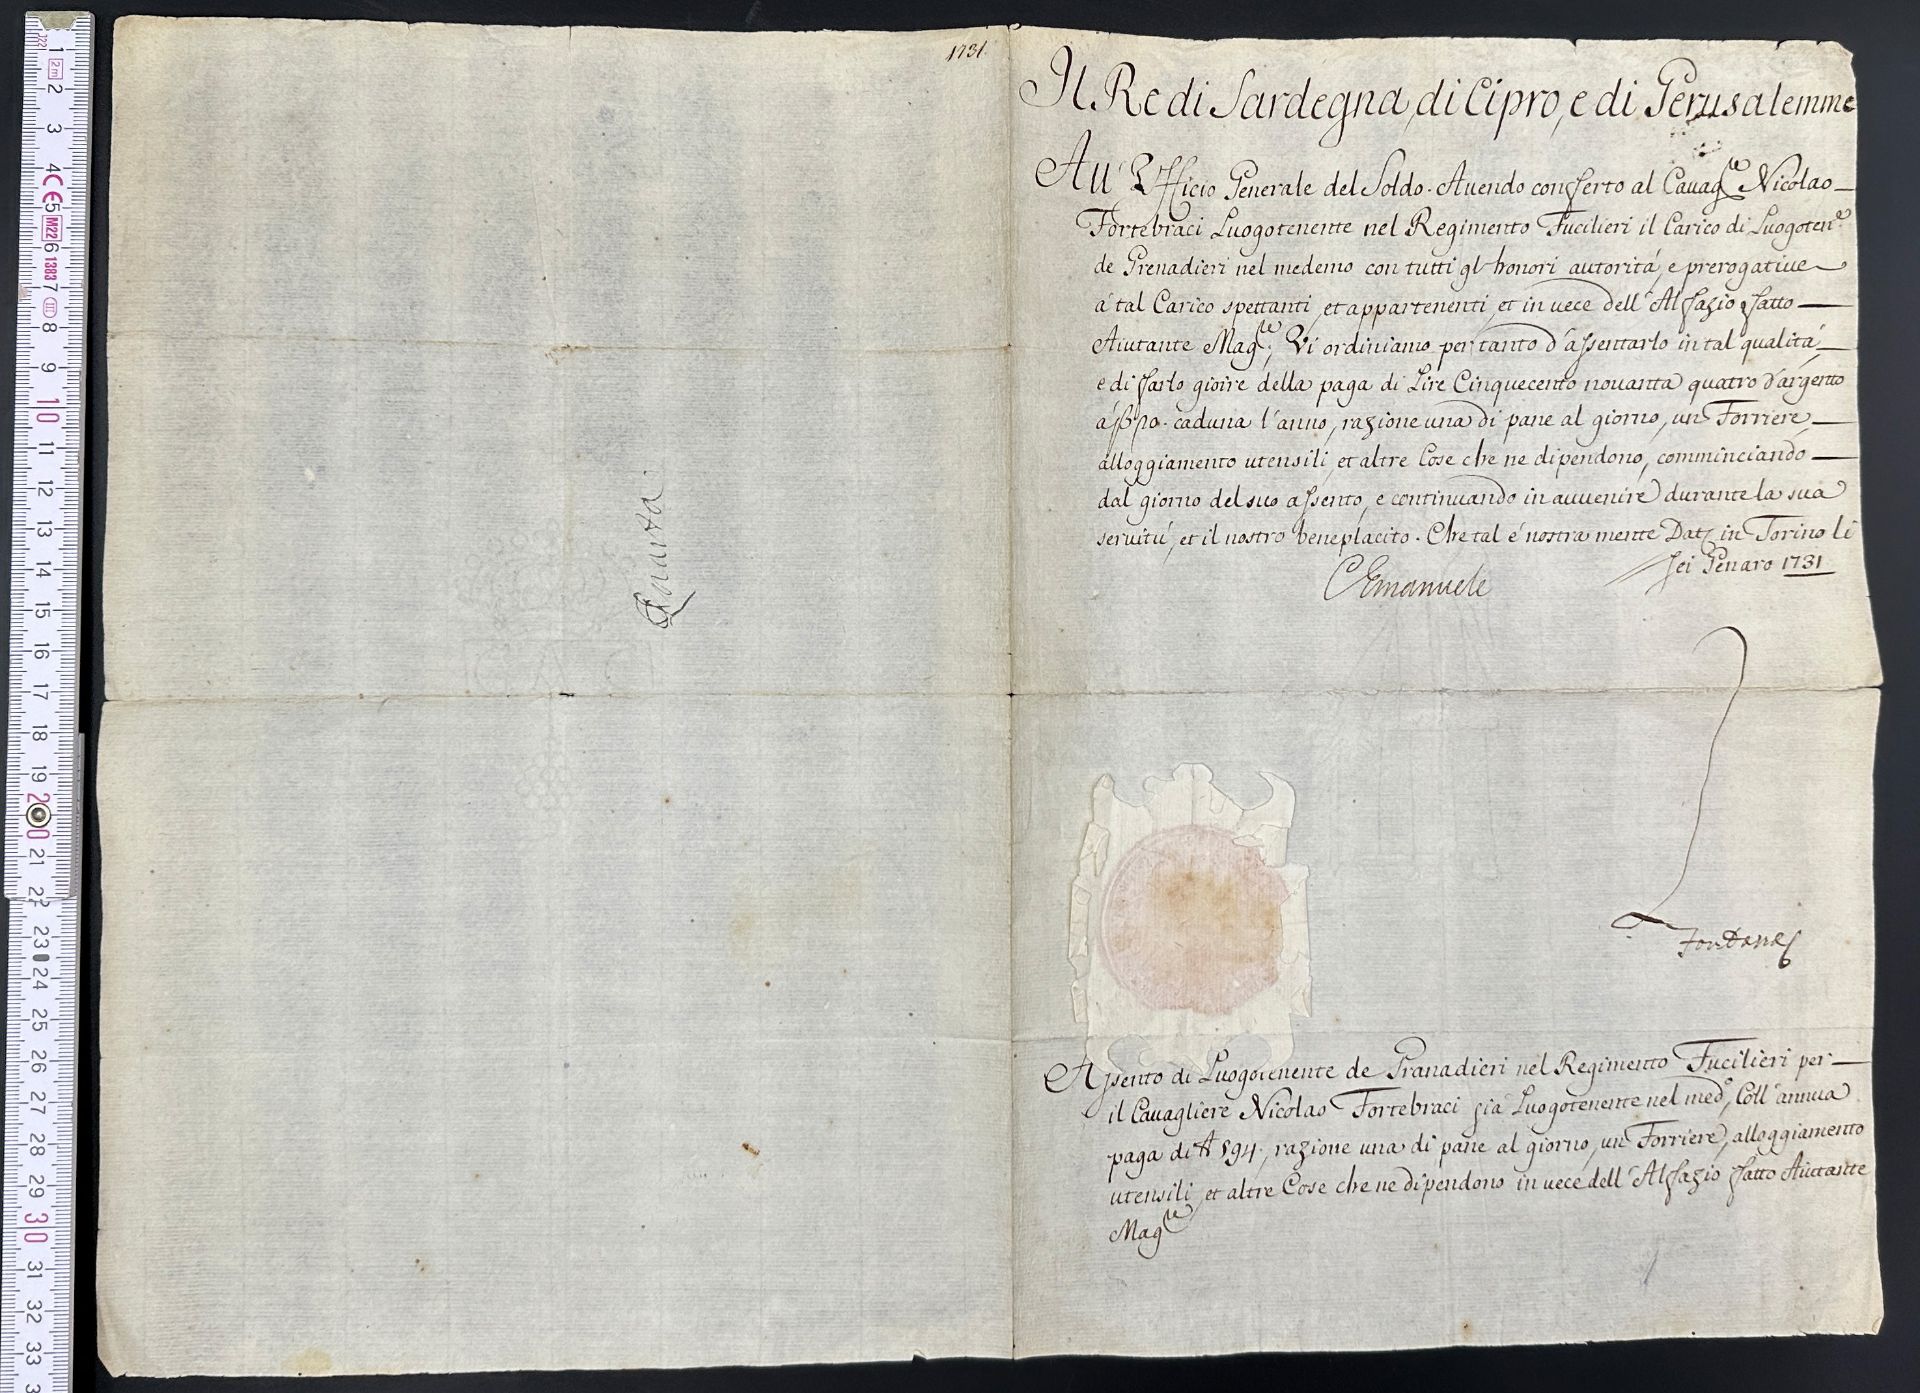 1731.
Il Re di Sardegna, di Cipro, e di Gerusalemme
All' Ufficio Generale del Soldo. Avendo conferto al Cavagre Nicolao
Fortebraci Luogotenente nel Regimento Fucilieri il Carico di Luogotene
de Grenadieri nel medemo con tutti gl' honori autorità, e prerogative
à tal Carico spettanti, et appartenenti, et in vece dell' Alfazio fatto
Aiutante Magre; Vi ordiniamo per tanto d'assentarlo in tal qualità,
e di farlo gioire della paga di Lire Cinquecento novanta quatro d'argento
à caduna l'anno, razione una di pane al giorno, un Forriere,
alloggiamento utensili, et altre Cose che ne dipendono, comminciando
dal giorno del suo assento, e continuando in avvenire durante la sua
servitù, et il nostro beneplacito. Che tal è nostra mente Dat in Torino li
sei Genaro 1731
CEmanuele
Quarta
Fontana
Assento di Luogotenente de Granadieri nel Regimento Fucilieri per
il Cavagliere Nicolao Fortebraci già Luogotenente nel medo, Coll' annua
paga di 594., razione una di pane al giorno, un Forriere, alloggiamento
utensili, et altre Cose che ne dipendono in vece dell' Alfazio fatto Aiutante
Magre
1
2
3
4
5
6
7
8
9
10
11
12
13
14
15
16
17
18
19
20
21
22
23
24
25
26
27
28
29
30
31
32
33
2m
CE
M22
1383
III